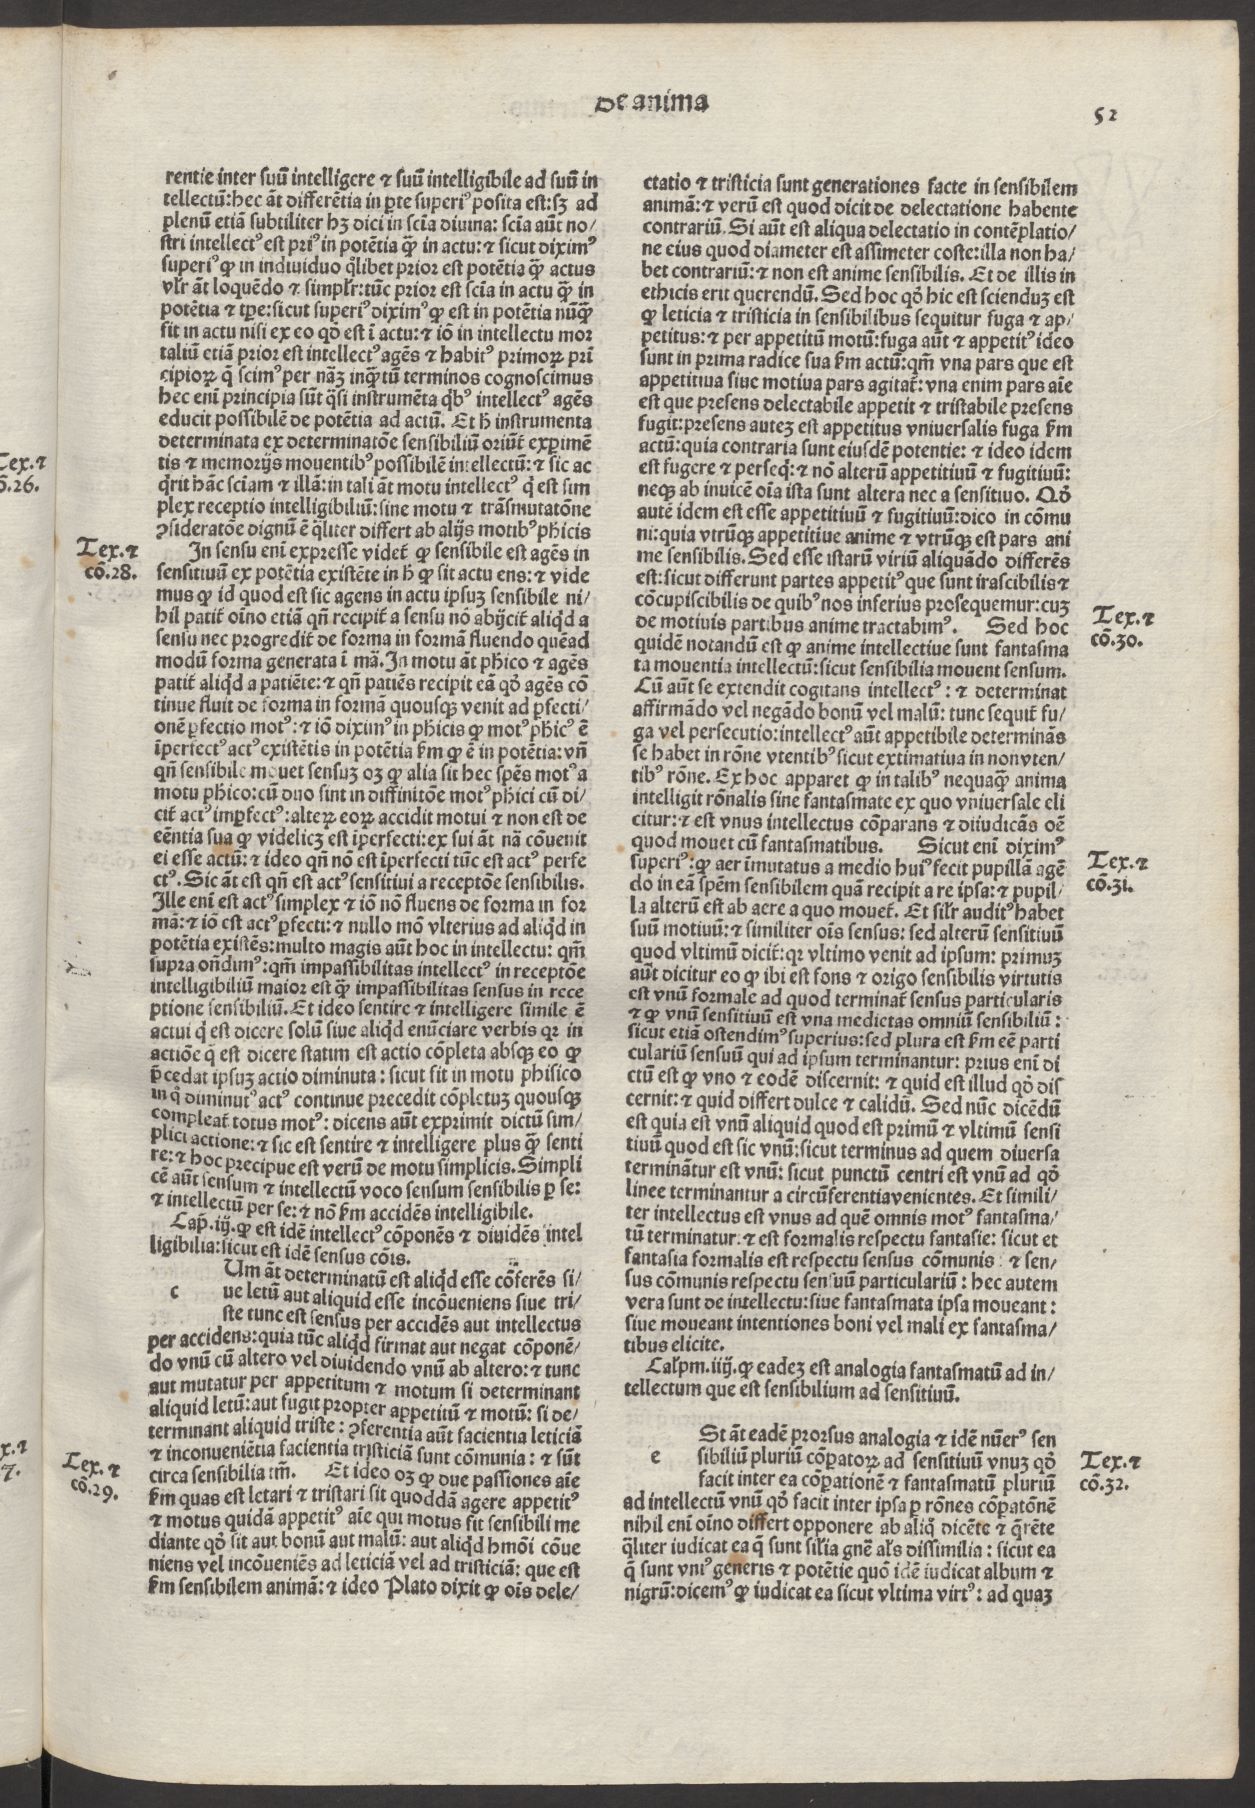 De anima
52
rentie inter suū intelligere ⁊ suū intelligibile ad suū in
tellectū: hec āt differētia in ꝑte superiꝰ posita est: sꝫ ad
plenū etiā subtiliter hꝫ dici in sciā diuina: sciā aūt no/
stri intellectꝰ est priꝰ in potētia q̄ꝫ in actu: ⁊ sicut diximꝰ
superiꝰ ꝙ in indiuiduo q̄libet prior est potētia q̄ꝫ actus
vlr̄ āt loquēdo ⁊ simplr̄: tūc prior est sciā in actu q̄ꝫ in
potētia ⁊ tꝑe: sicut superiꝰ diximꝰ ꝙ est in potētia nūq̄ꝫ
fit in actu nisi ex eo qḋ est ī actu: ⁊ iō in intellectu mor
taliū etiā prior est intellectꝰ agēs ⁊ habitꝰ primoꝝ prī
cipioꝝ q̄ scimꝰ per nāꝫ inq̄ꝫtū terminos cognoscimus
hec enī principia sūt q̄si instrumēta q̄bꝰ intellectꝰ agēs
educit possibilē de potētia ad actū. Et h̄ instrumenta
determinata ex determinatōe sensibiliū oriūt̄ exꝑimē
tis ⁊ memorijs mouentibꝰ possibilē intellectū: ⁊ sic ac
q̄rit hāc sciam ⁊ illā: in tali āt motu intellectꝰ q̄ est sim
plex receptio intelligibiliū: sine motu ⁊ trāsmutatōne
ꝯsideratōe dignū ē q̄liter differt ab alijs motibꝰ pħicis
In sensu enī expresse videt̄ ꝙ sensibile est agēs in
sensitiuū ex potētia existēte in h̄ ꝙ sit actu ens: ⁊ vide
mus ꝙ id quod est sic agens in actu ipsuꝫ sensibile ni/
hil patit̄ oīno etiā qn̄ recipit̄ a sensu nō abijcit̄ aliq̇d a
sensu nec progredit̄ de forma in formā fluendo quēad
modū forma generata ī mā. In motu āt pħico ⁊ agēs
patit̄ aliq̇d a patiēte: ⁊ qn̄ patiēs recipit eā qḋ agēs cō
tinue fluit de forma in formā quousqꝫ venit ad ꝑfecti/
onē ꝑfectio motꝰ: ⁊ iō diximꝰ in pħicis ꝙ motꝰ pħicꝰ ē
īperfectꝰ actꝰ existētis in potētia ẜm ꝙ ē in potētia: vn̄
qn̄ sensibile mouet sensuꝫ oꝫ ꝙ alia sit hec spēs motꝰ a
motu pħico: cū duo sint in diffinitōe motꝰ pħici cū di/
cit̄ actꝰ imꝑfectꝰ: alteꝝ eoꝝ accidit motui ⁊ non est de
eēntia sua ꝙ videlicꝫ est īperfecti: ex sui āt nā cōuenit
ei esse actū: ⁊ ideo qn̄ nō est īperfecti tūc est actꝰ perfe
ctꝰ. Sic āt est qn̄ est actꝰ sensitiui a receptōe sensibilis.
Ille enī est actꝰ simplex ⁊ iō nō fluens de forma in for
mā: ⁊ iō est actꝰ ꝑfecti: ⁊ nullo mō vlterius ad aliq̇d in
potētia existēs: multo magis aūt hoc in intellectu: qm̄
supra on̄dimꝰ: qm̄ impassibilitas intellectꝰ in receptōe
intelligibiliū maior est q̄ꝫ impassibilitas sensus in rece
ptione sensibiliū. Et ideo sentire ⁊ intelligere simile ē
actui q̄ est dicere solū siue aliq̇d enūciare verbis qꝛ in
actiōe q̄ est dicere statim est actio cōpleta absqꝫ eo ꝙ
p̄cedat ipsuꝫ actio diminuta: sicut fit in motu phisico
in q̇ diminutꝰ actꝰ continue precedit cōpletuꝫ quousqꝫ
compleat̄ totus motꝰ: dicens aūt exprimit dictū sim/
plici actione: ⁊ sic est sentire ⁊ intelligere plus q̄ꝫ senti
re: ⁊ hoc precipue est verū de motu simplicis. Simpli
cē aūt sensum ⁊ intellectū voco sensum sensibilis ꝑ se:
⁊ intellectū per se: ⁊ nō ẜm accidēs intelligibile.
Cap̄. iij. ꝙ est idē intellectꝰ cōponēs ⁊ diuidēs intel
ligibilia: sicut est idē sensus cōis.
c
Um āt determinatū est aliq̇d esse cōferēs si/
ue letū aut aliquid esse incōueniens siue tri/
ste tunc est sensus per accidēs aut intellectus
per accidens: quia tūc aliq̇d firmat aut negat cōponē/
do vnū cū altero vel diuidendo vnū ab altero: ⁊ tunc
aut mutatur per appetitum ⁊ motum si determinant
aliquid letū: aut fugit propter appetitū ⁊ motū: si de/
terminant aliquid triste: ꝯferentia aūt facientia leticiā
⁊ inconueniētia facientia tristiciā sunt cōmunia: ⁊ sūt
circa sensibilia tm̄. Et ideo oꝫ ꝙ due passiones aīe
ẜm quas est letari ⁊ tristari sit quoddā agere appetitꝰ
⁊ motus quidā appetitꝰ aīe qui motus fit sensibili me
diante qḋ sit aut bonū aut malū: aut aliq̇d hmōi cōue
niens vel incōueniēs ad leticiā vel ad tristiciā: que est
ẜm sensibilem animā: ⁊ ideo Plato dixit ꝙ oīs dele/
ctatio ⁊ tristicia sunt generationes facte in sensibilem
animā: ⁊ verū est quod dicit de delectatione habente
contrariū. Si aūt est aliqua delectatio in contēplatio/
ne eius quod diameter est assimeter coste: illa non ha/
bet contrariū: ⁊ non est anime sensibilis. Et de illis in
ethicis erit querendū. Sed hoc qḋ hic est scienduꝫ est
ꝙ leticia ⁊ tristicia in sensibilibus sequitur fuga ⁊ ap/
petitus: ⁊ per appetitū motū: fuga aūt ⁊ appetitꝰ ideo
sunt in prima radice sua ẜm actū: qm̄ vna pars que est
appetitiua siue motiua pars agitat̄: vna enim pars aīe
est que presens delectabile appetit ⁊ tristabile presens
fugit: presens auteꝫ est appetitus vniuersalis fuga ẜm
actū: quia contraria sunt eiusdē potentie: ⁊ ideo idem
est fugere ⁊ perseq̇: ⁊ nō alterū appetitiuū ⁊ fugitiuū:
neqꝫ ab inuicē oīa ista sunt altera nec a sensitiuo. Qḋ
autē idem est esse appetitiuū ⁊ fugitiuū: dico in cōmu
ni: quia vtrūqꝫ appetitiue anime ⁊ vtrūqꝫ est pars ani
me sensibilis. Sed esse istarū viriū aliquādo differēs
est: sicut differunt partes appetitꝰ que sunt irascibilis ⁊
cōcupiscibilis de quibꝰ nos inferius prosequemur: cuꝫ
de motiuis partibus anime tractabimꝰ. Sed hoc
quidē notandū est ꝙ anime intellectiue sunt fantasma
ta mouentia intellectū: sicut sensibilia mouent sensum.
Cū aūt se extendit cogitans intellectꝰ: ⁊ determinat
affirmādo vel negādo bonū vel malū: tunc sequit̄ fu/
ga vel persecutio: intellectꝰ aūt appetibile determinās
se habet in rōne vtentibꝰ sicut extimatiua in non vten/
tibꝰ rōne. Ex hoc apparet ꝙ in talibꝰ nequaq̄ꝫ anima
intelligit rōnalis sine fantasmate ex quo vniuersale eli
citur: ⁊ est vnus intellectus cōparans ⁊ diiudicās oē
quod mouet cū fantasmatibus. Sicut enī diximꝰ
superiꝰ: ꝙ aer īmutatus a medio huiꝰ fecit pupillā agē
do in eā spēm sensibilem quā recipit a re ipsa: ⁊ pupil/
la alterū est ab aere a quo mouet̄. Et silr̄ auditꝰ habet
suū motiuū: ⁊ similiter oīs sensus: sed alterū sensitiuū
quod vltimū dicit̄: qꝛ vltimo venit ad ipsum: primuꝫ
aūt dicitur eo ꝙ ibi est fons ⁊ origo sensibilis virtutis
est vnū formale ad quod terminat̄ sensus particularis
⁊ ꝙ vnū sensitiuū est vna medietas omniū sensibiliū:
sicut etiā ostendimꝰ superius: sed plura est ẜm eē parti
culariū sensuū qui ad ipsum terminantur: prius enī di
ctū est ꝙ vno ⁊ eodē discernit: ⁊ quid est illud qḋ dis
cernit: ⁊ quid differt dulce ⁊ calidū. Sed nūc dicēdū
est quia est vnū aliquid quod est primū ⁊ vltimū sensi
tiuū quod est sic vnū: sicut terminus ad quem diuersa
terminātur est vnū: sicut punctū centri est vnū ad qḋ
linee terminantur a circūferentia venientes. Et simili/
ter intellectus est vnus ad quē omnis motꝰ fantasma/
tū terminatur: ⁊ est formalis respectu fantasie: sicut et
fantasia formalis est respectu sensus cōmunis: ⁊ sen/
sus cōmunis respectu sensuū particulariū: hec autem
vera sunt de intellectu: siue fantasmata ipsa moueant:
siue moueant intentiones boni vel mali ex fantasma/
tibus elicite.
Caƚpm. iiij. ꝙ eadeꝫ est analogia fantasmatū ad in/
tellectum que est sensibilium ad sensitiuū.
e
St āt eadē prorsus analogia ⁊ idē nūerꝰ sen
sibiliū pluriū cōꝑatoꝝ ad sensitiuū vnuꝫ qḋ
facit inter ea cōꝑationē ⁊ fantasmatū pluriū
ad intellectū vnū qḋ facit inter ipsa ꝑ rōnes cōꝑatōnē
nihil enī oīno differt opponere ab aliq̇ dicēte ⁊ q̄rēte
q̄liter iudicat ea q̄ sunt silīa gn̄e alr̄s dissimilia: sicut ea
q̄ sunt vniꝰ generis ⁊ potētie quō idē iudicat album ⁊
nigrū: dicemꝰ ꝙ iudicat ea sicut vltima virtꝰ: ad quaꝫ
Tex. ⁊
cō. 26.
Tex. ⁊
cō. 28.
x. ⁊
7.
Tex. ⁊
cō. 29.
Tex. ⁊
cō. 30.
Tex. ⁊
cō. 31.
Tex. ⁊
cō. 32.